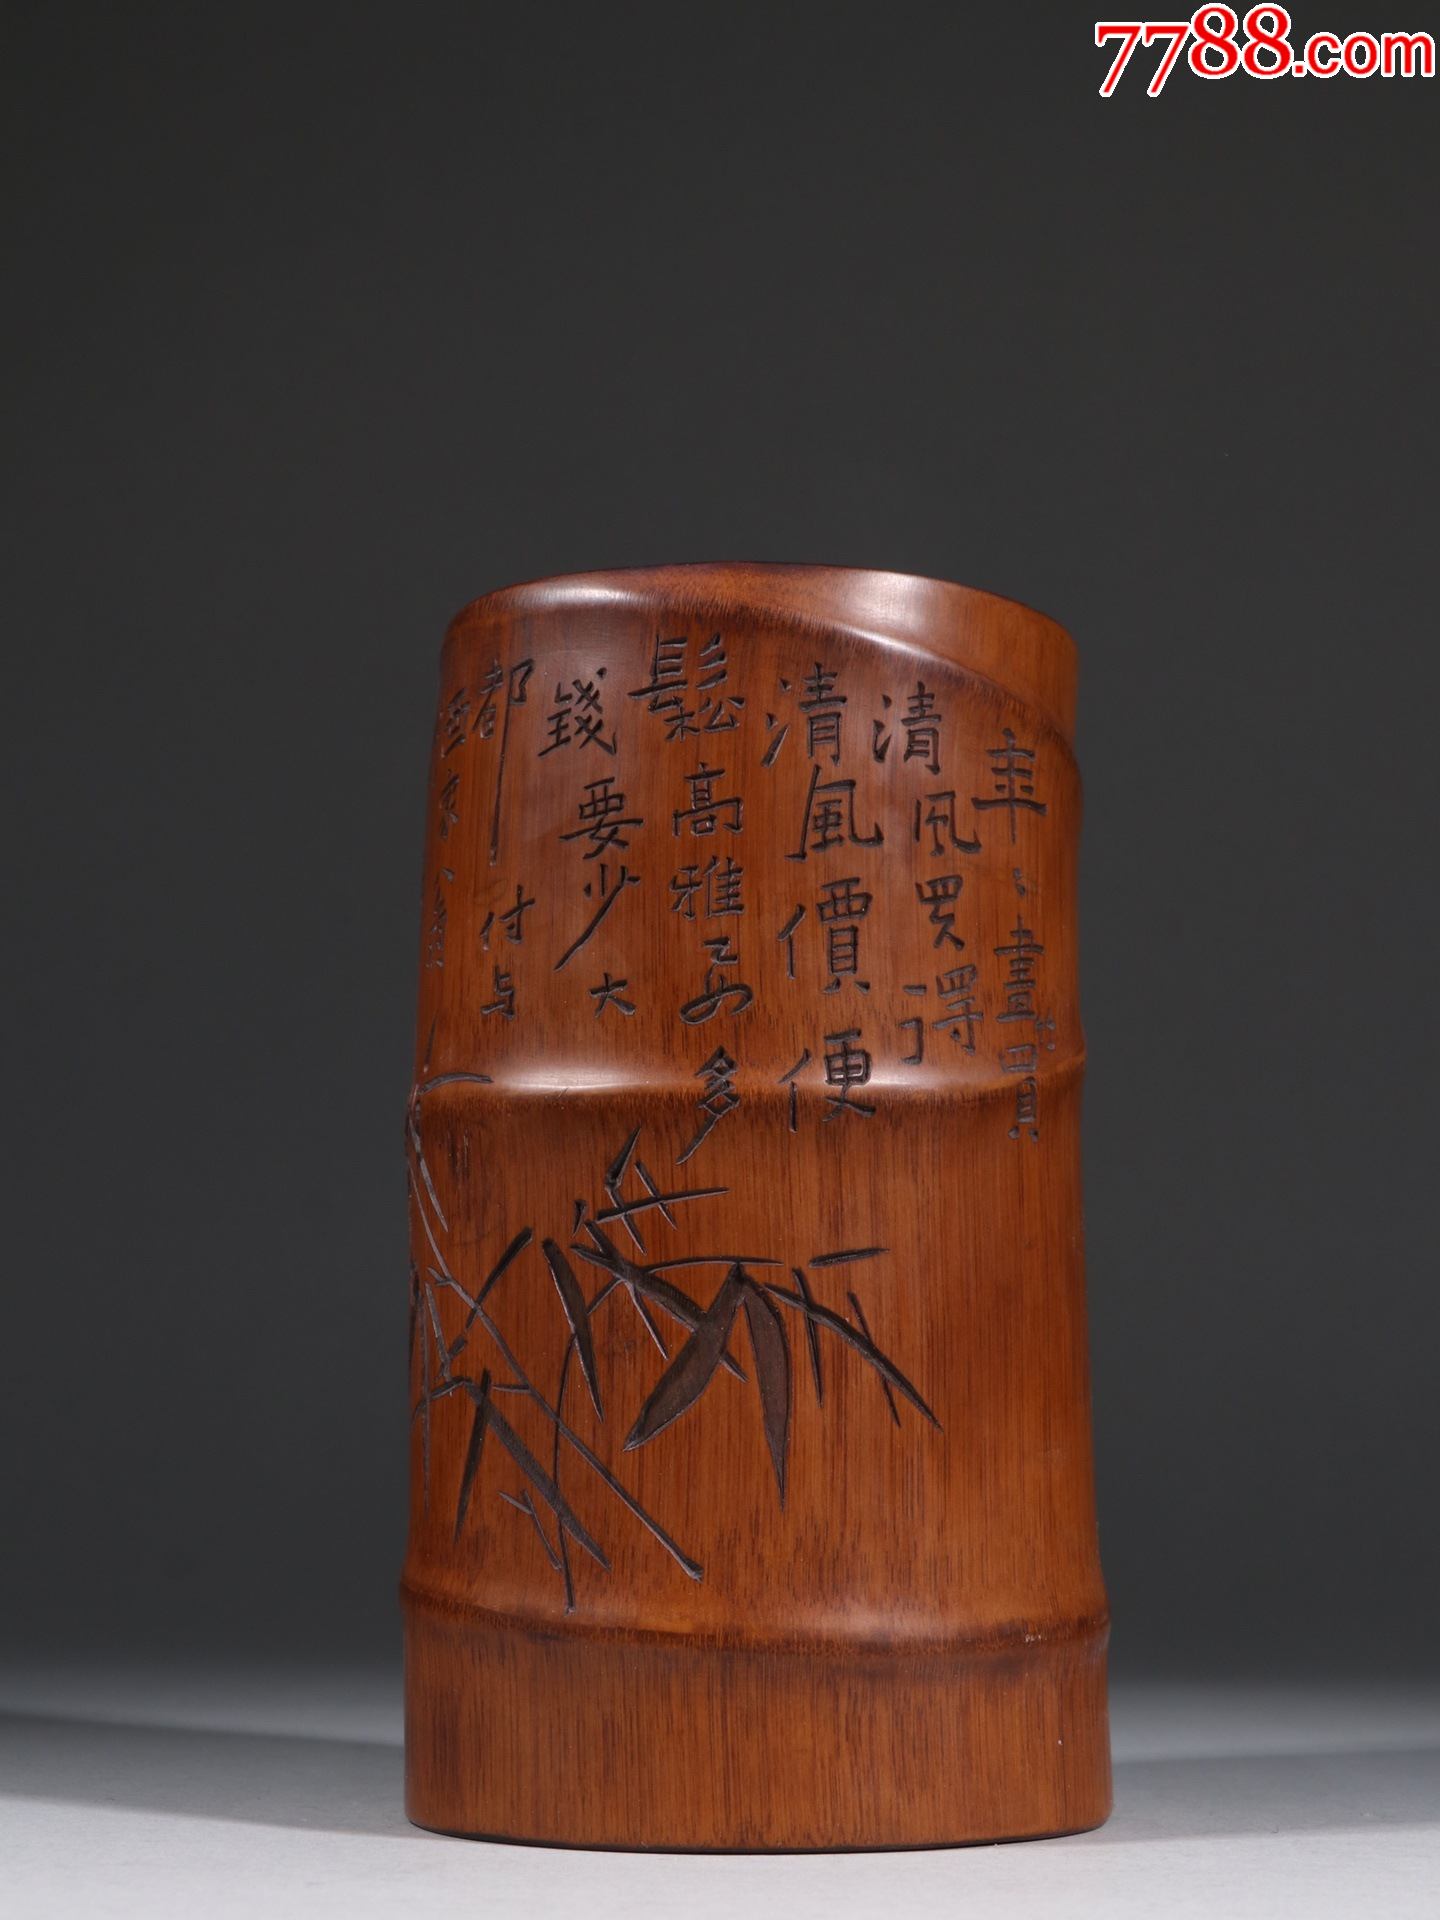 7788.com
年〻畫竹買
清風買得
清風價便
鬆高雅要多
錢要少大
都付与
酒家